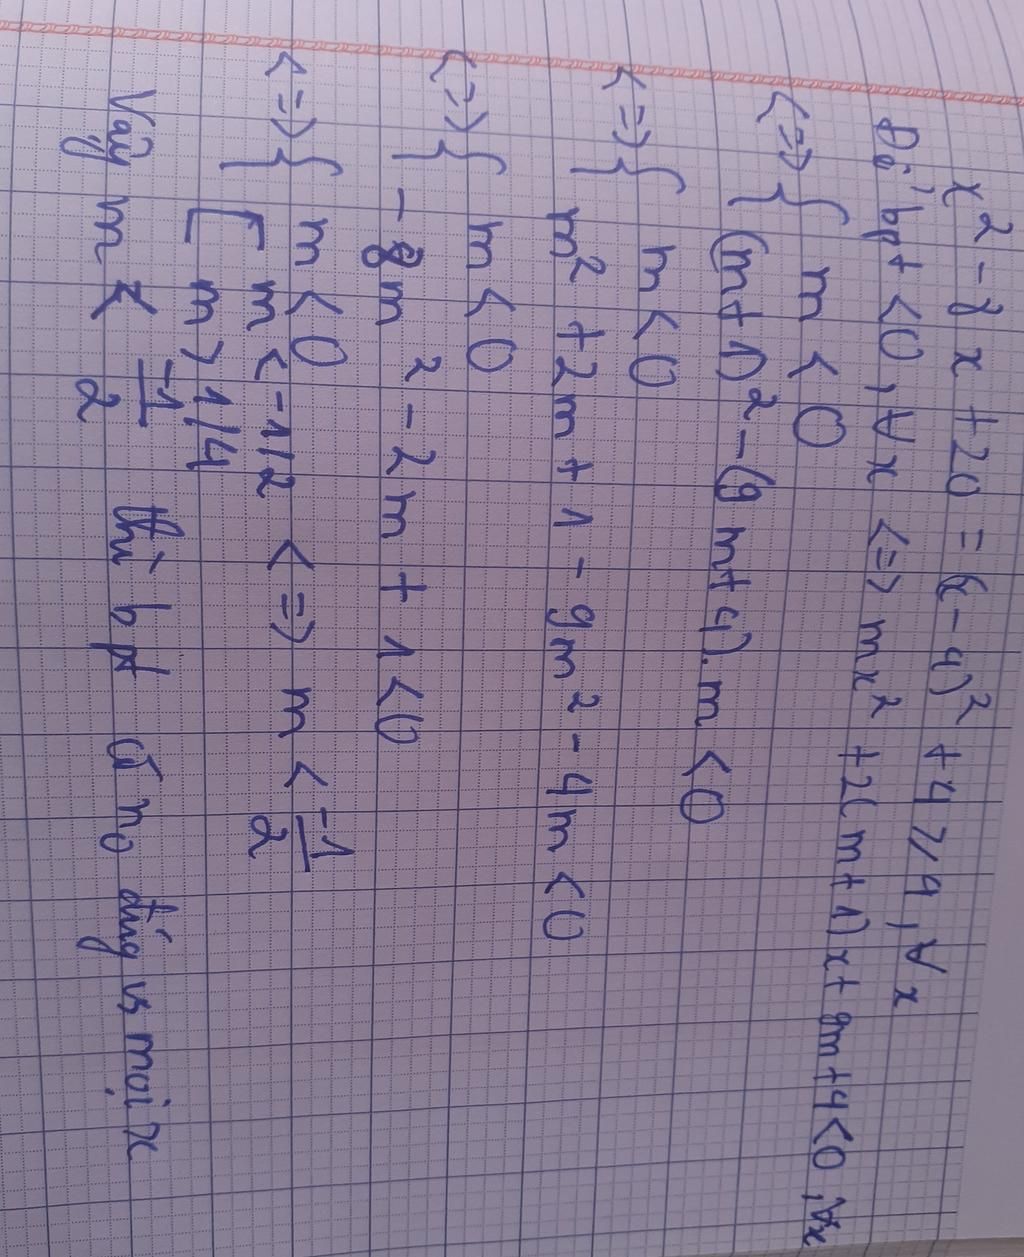 x² - 8x + 20 = (x - 4)² + 4 ≥ 4, ∀x
Để bpt < 0, ∀x <=> mx² + 2(m + 1)x + 9m + 4 < 0, ∀x
<=> { m < 0
(m + 1)² - (9m + 4).m < 0
<=> { m < 0
m² + 2m + 1 - 9m² - 4m < 0
<=> { m < 0
- 8m² - 2m + 1 < 0
<=> { m < 0
[ m < -1/2 <=> m < -1/2
m > 1/4
Vậy m < -1/2 thì bpt có no đúng vs mọi x